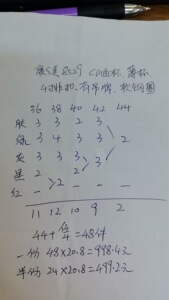 康5美8029 CD面杯 薄杯
4排扣、有吊牌、软钢圈
36 38 40 42 44
肤 3 3 2 3
绿 3 4 3 3 2
灰 3 3 3 3
黑 2 2
红 2
11 12 10 9 2
44+4=48件
一份 48×20.8=998.4元
半份 24×20.8=499.2元